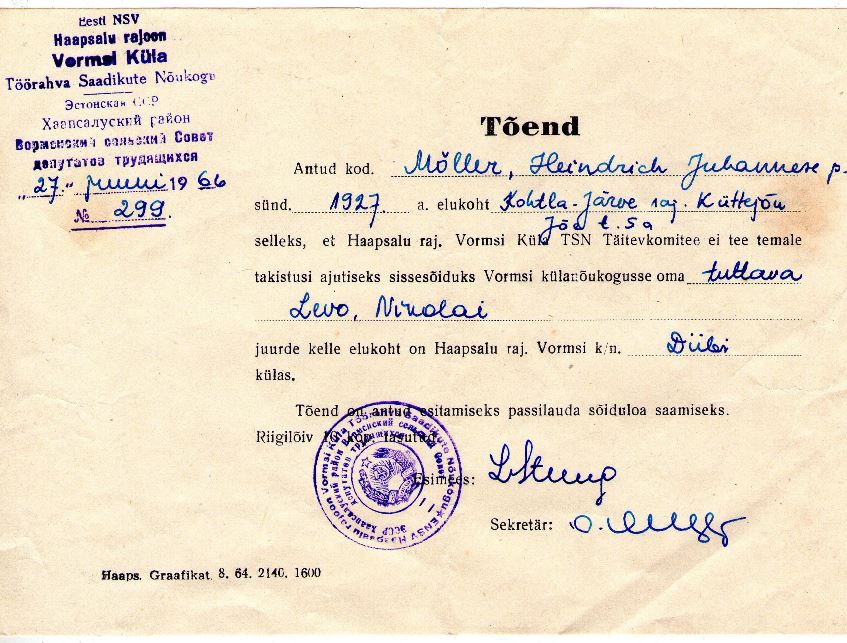 Eesti NSV
Haapsalu rajoon
Vormsi Küla
Töörahva Saadikute Nõukogu
Эстонская ССР
Хаапсалуский район
Вормсиский сельский Совет
депутатов трудящихся
"27." juuni 1966
№ 299.
Tõend
Antud kod. Möller, Heindrich Juhannese p.
sünd. 1927. a. elukoht Kohtla-Järve raj. Küttejõu
Jõe t. 5a
selleks, et Haapsalu raj. Vormsi Küla TSN Täitevkomitee ei tee temale
takistusi ajutiseks sissesõiduks Vormsi külanõukogusse oma tuttava
Levo, Nikolai
juurde kelle elukoht on Haapsalu raj. Vormsi k/n. Diibi
külas.
Tõend on antud esitamiseks passilauda sõiduloa saamiseks.
Riigilõiv 10 kop. tasutud.
Esimees:
Sekretär:
ENSV Haapsalu rajoon Vormsi Küla Töörahva Saadikute Nõukogu
ЭССР Хаапсалуский район Вормсиский сельский Совет
депутатов трудящихся
Haaps. Graafikat. 8. 64. 2140. 1600